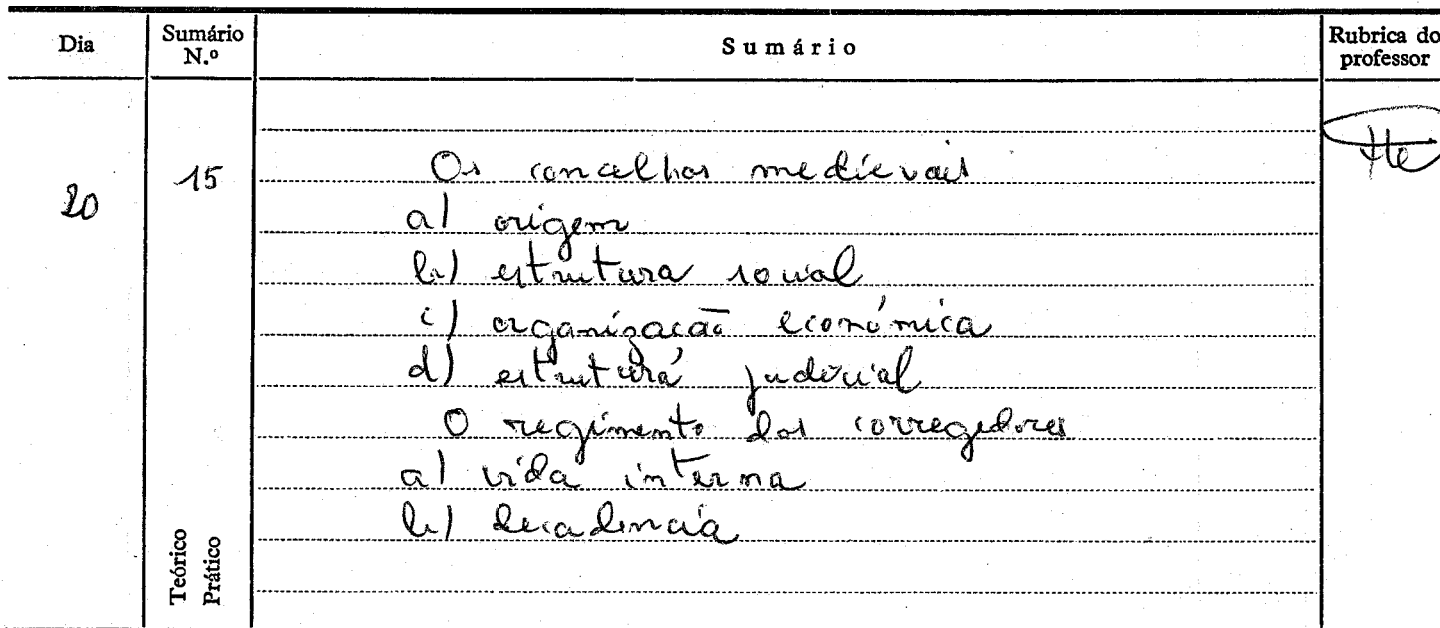 Dia
Sumário N.º
Sumário
Rubrica do professor
20
15
Os concelhos medievais
a) origem
b) estrutura social
c) organização económica
d) estrutura judicial
O regimento dos corregedores
a) vida interna
b) decadencia
Teórico
Prático